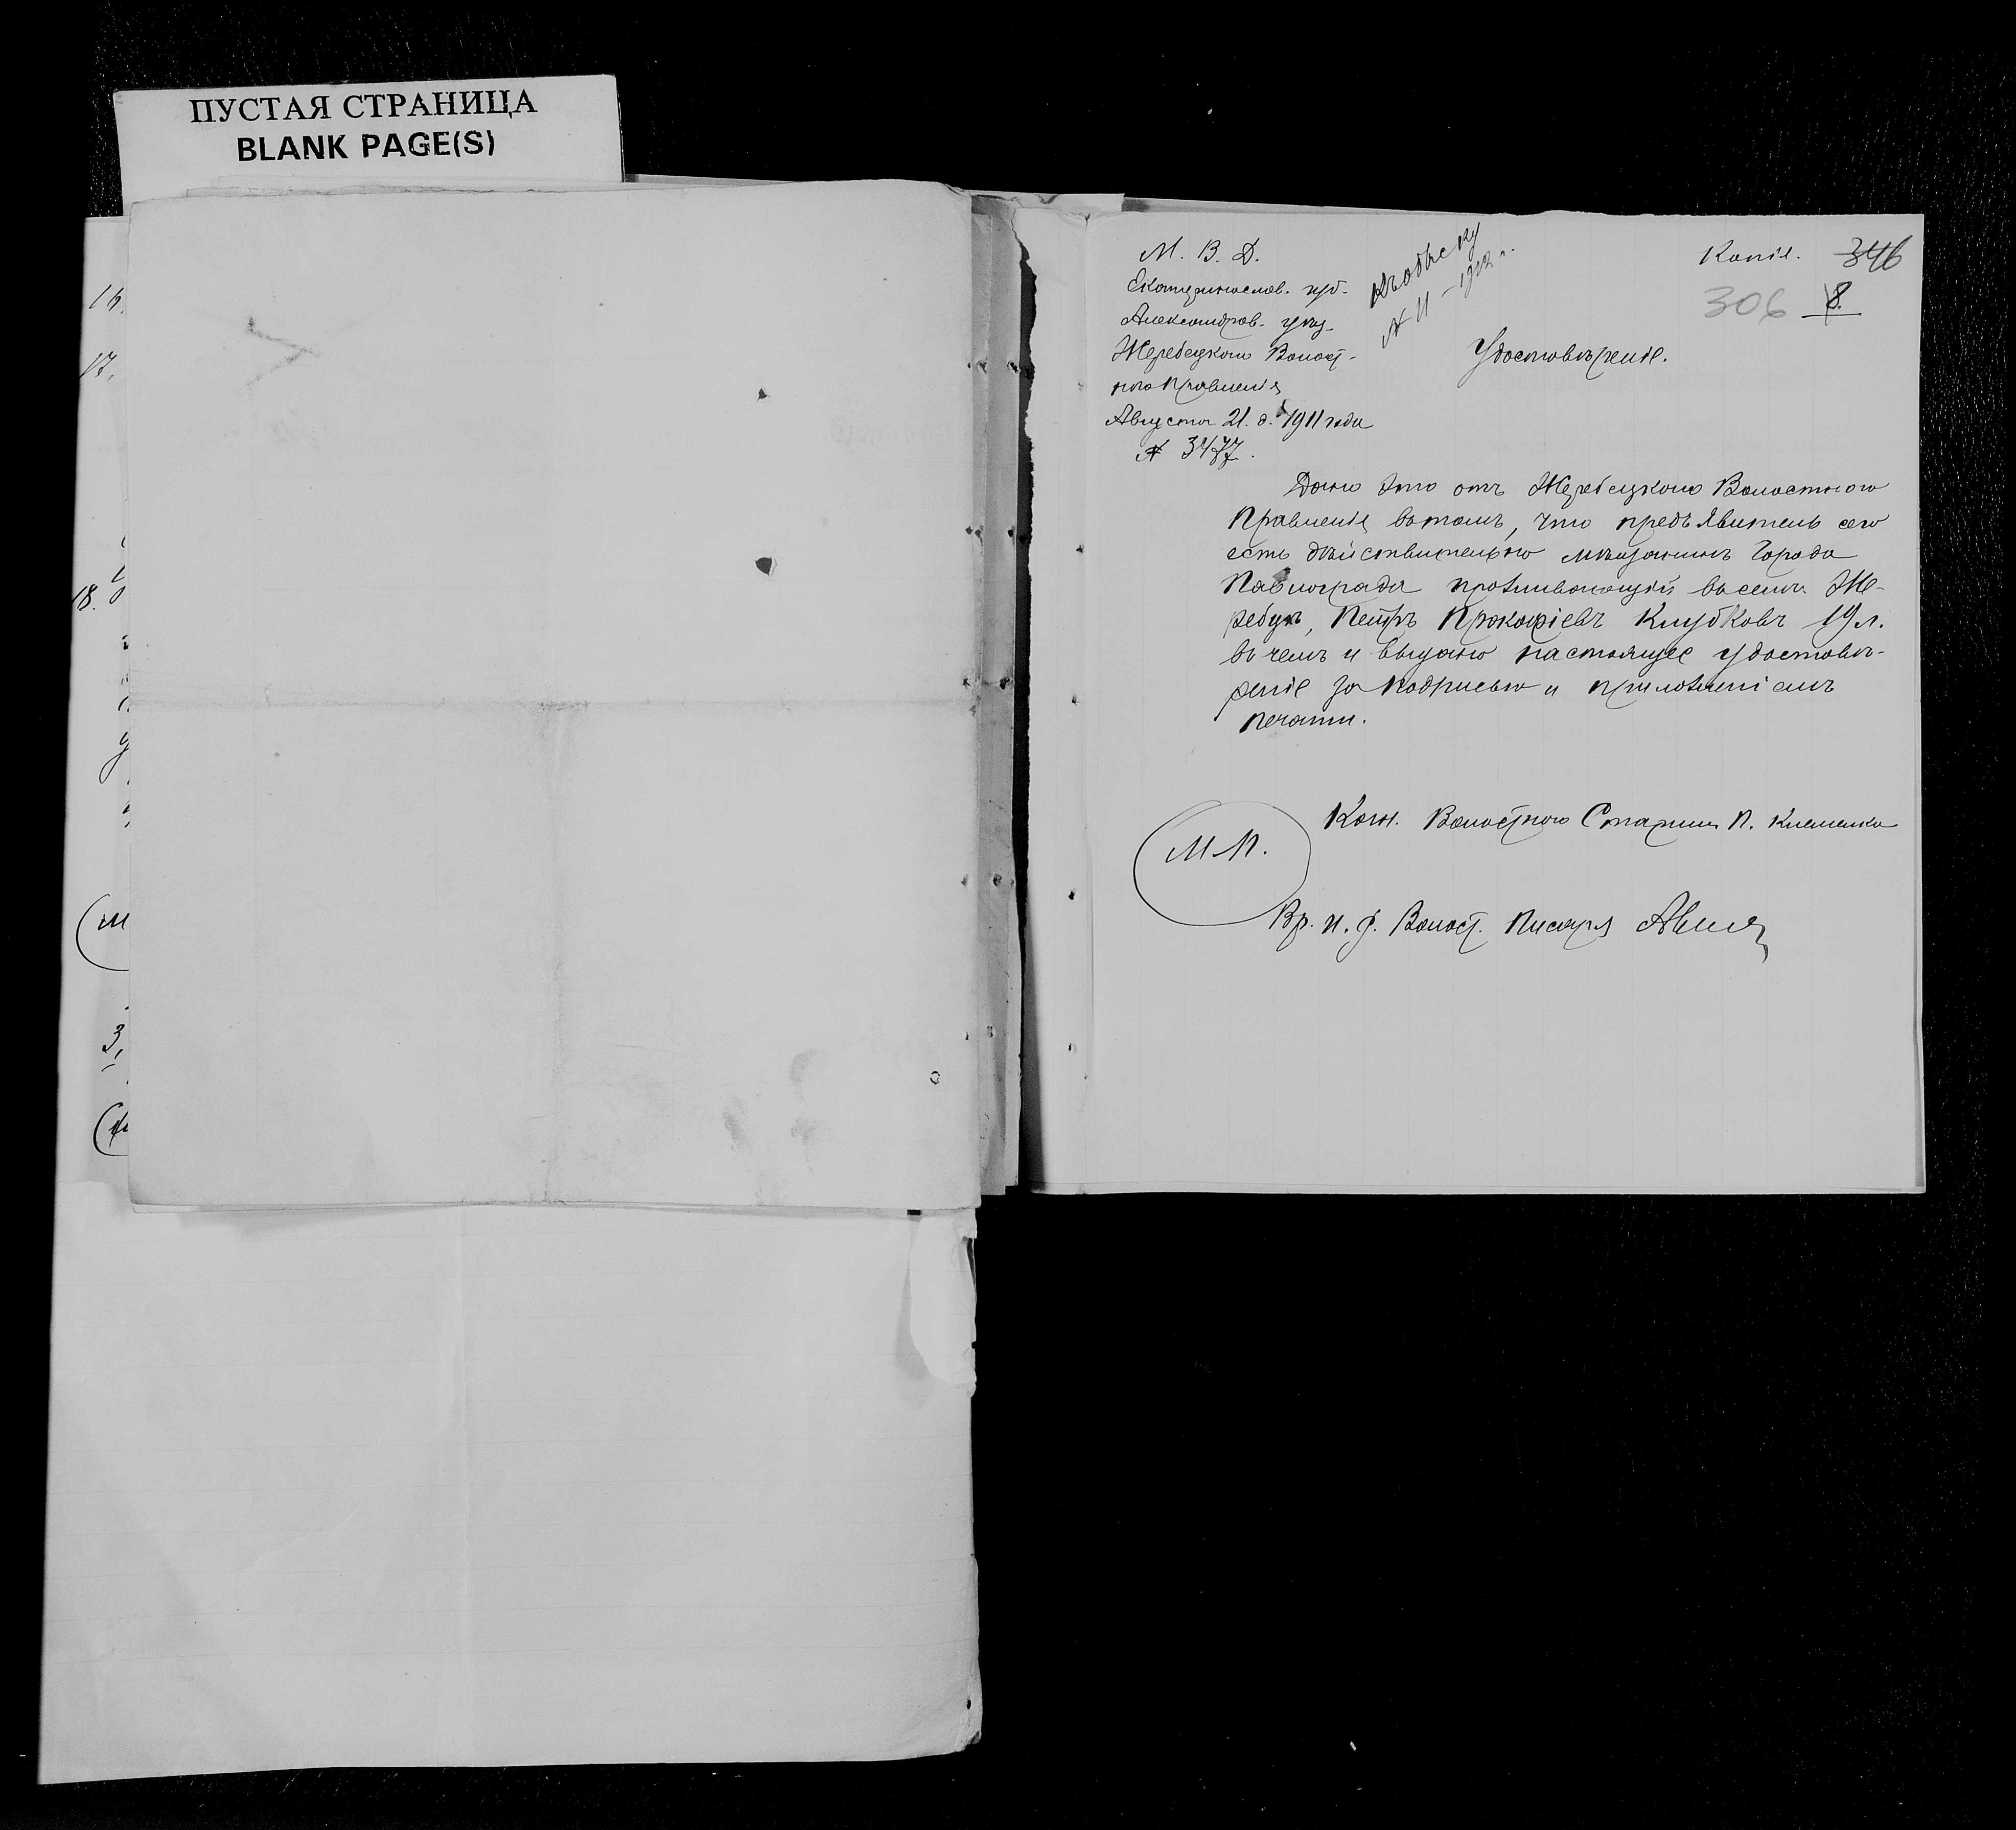 ПУСТАЯ СТРАНИЦА
BLANK PAGE(S)
16.
17.
18.
3,
М. В. Д.
Екатеринослав. губ.
Александров. уѣз.
Жеребецкого Волост-
ного Правленія
Августа 21. д. 1911 года
№ 3477.
Къ обыску
№ 11 – 1912 г.
Копія. 346
306 8.
Удостовѣреніе.
Дано это отъ Жеребецкого Волостного
Правленія въ томъ, что предъявитель сего
есть дѣйствительно мѣщанинъ Города
Павлограда проживающій въ селѣ Же-
ребцѣ, Петръ Прокофіевъ Клубковъ 19 л.
въ чемъ и выдано настоящее удостовѣ-
реніе за подписью и приложеніемъ
печати.
Волостного Старшин П. Клеменко
М.П.
Вр. и. д. Волост. Писаря